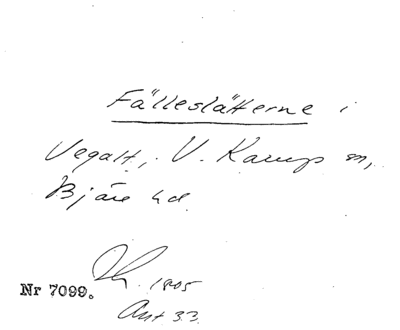 Fälleslätterne i
Vegalt, V. Karup sn,
Bjäre hd.
1805
Nr 7099.
Akt 33